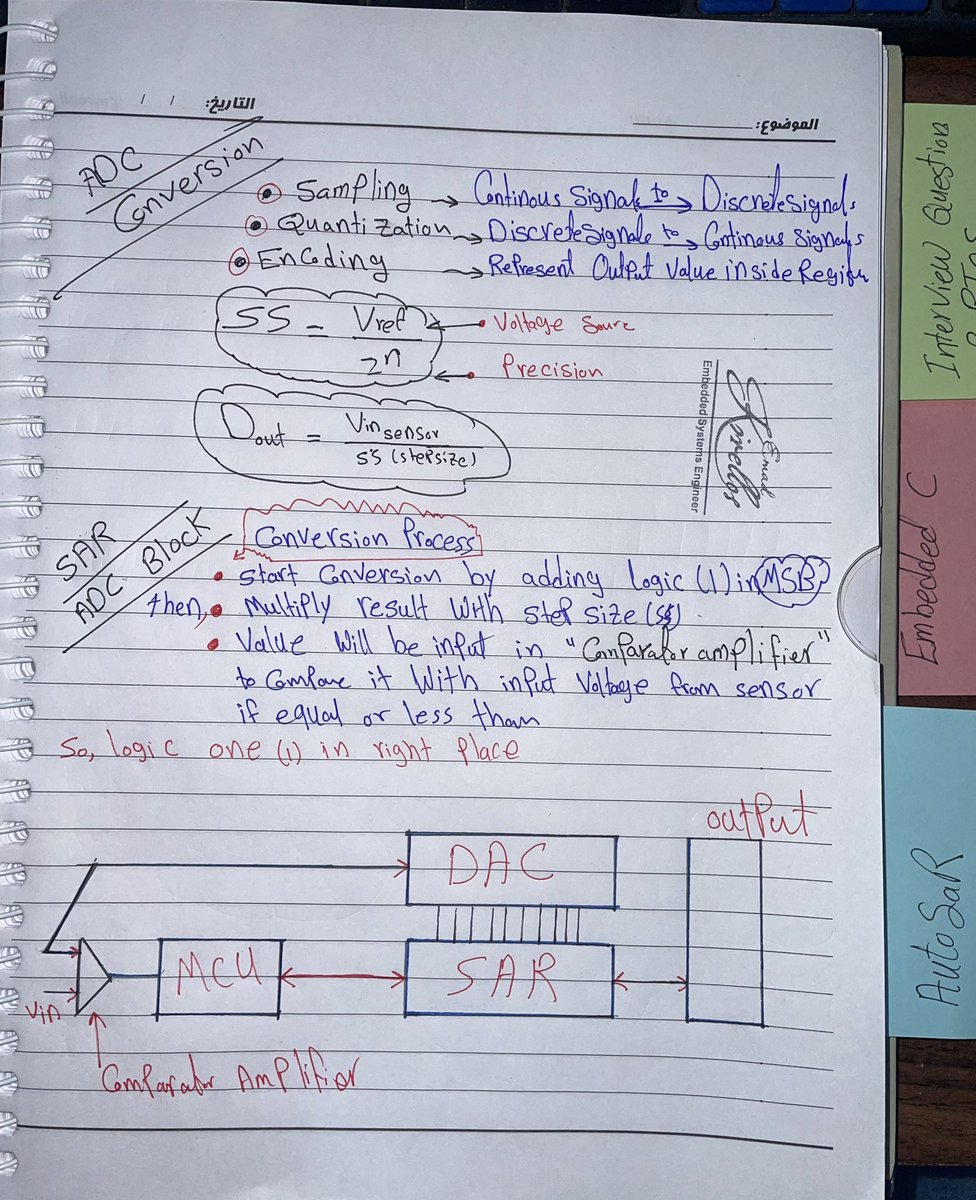 التاريخ: / /
الموضوع:
ADC
Conversion
Sampling → Continous Signals to → Discrete Signals
Quantization → Discrete Signals to → Continous Signals
Encoding → Represent Output Value inside Register
SS = Vref / 2n
Voltage Source
Precision
Dout = Vin sensor / SS (stepsize)
Emad
Kirellos
Embedded Systems Engineer
SAR
ADC Block
Conversion Process
Start Conversion by adding logic (1) in MSB
then, Multiply result with step size (SS).
Value Will be input in "Comparator amplifier"
to Compare it With input Voltage from sensor
if equal or less than
So, logic one (1) in right place
output
DAC
MCU
SAR
Vin
Comparator Amplifier
Interview Question
Embedded C
AutoSaR